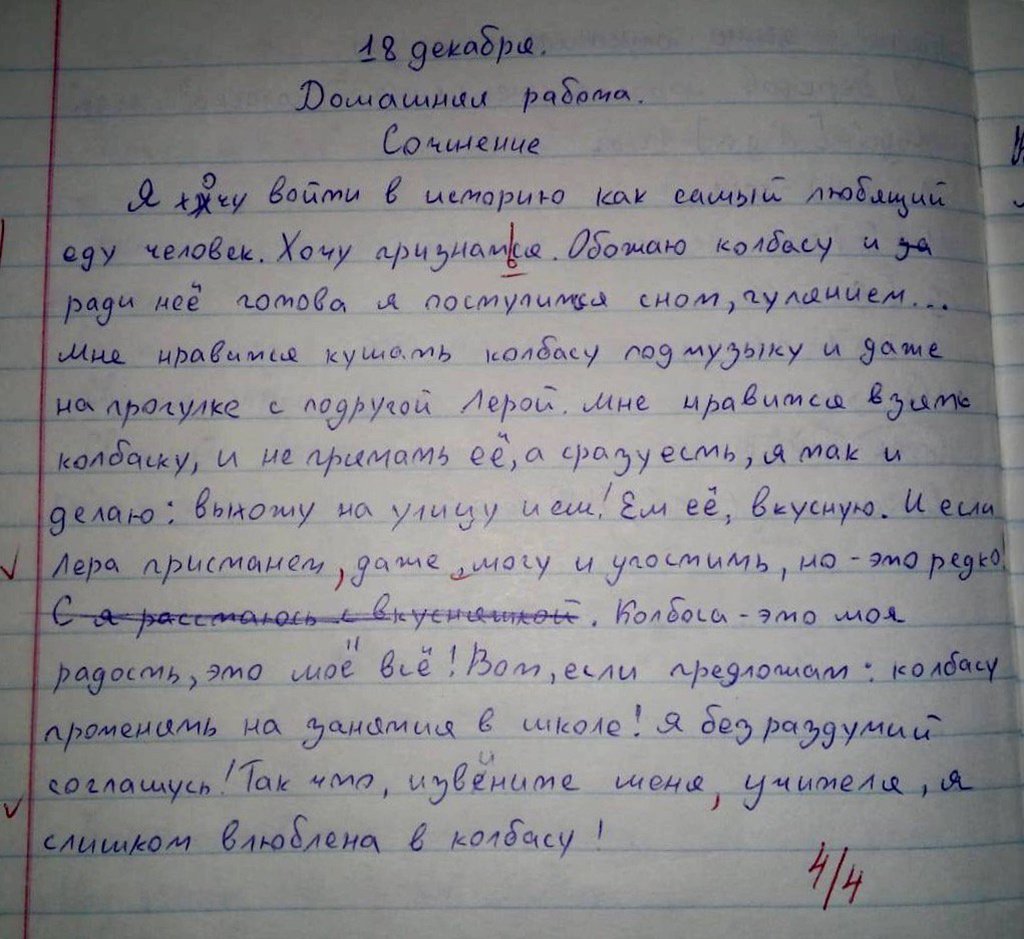 18 декабря.
Домашняя работа.
Сочинение
Я хочу войти в историю как самый любящий
еду человек. Хочу признаться. Обожаю колбасу и за
ради неё готова я поступится сном, гулянием...
Мне нравится кушать колбасу под музыку и даже
на прогулке с подругой Лерой. Мне нравится взять
колбаску, и не прятать её, а сразу есть, я так и
делаю: выхожу на улицу и ем! Ем её, вкусную. И если
Лера пристанет, даже, могу и угостить, но - это редко.
С я расстаюсь с вкусняшкой. Колбоса - это моя
радость, это моё всё! Вот, если предложат: колбасу
променять на занятия в школе! Я без раздумий
соглашусь! Так что, извините меня, учителя, я
слишком влюблена в колбасу!
4/4